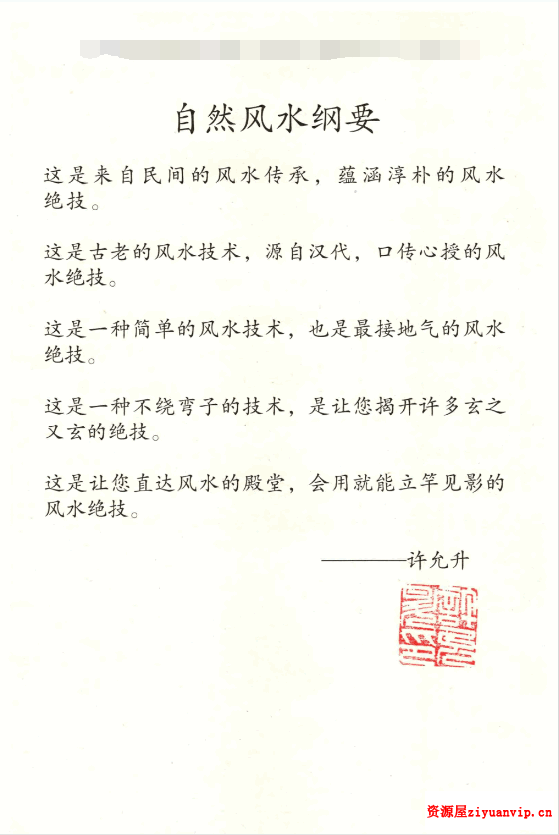 自然风水纲要
这是来自民间的风水传承，蕴涵淳朴的风水
绝技。
这是古老的风水技术，源自汉代，口传心授的风
水绝技。
这是一种简单的风水技术，也是最接地气的风水
绝技。
这是一种不绕弯子的技术，是让您揭开许多玄之
又玄的绝技。
这是让您直达风水的殿堂，会用就能立竿见影的
风水绝技。
————许允升
资源屋ziyuanvip.cn